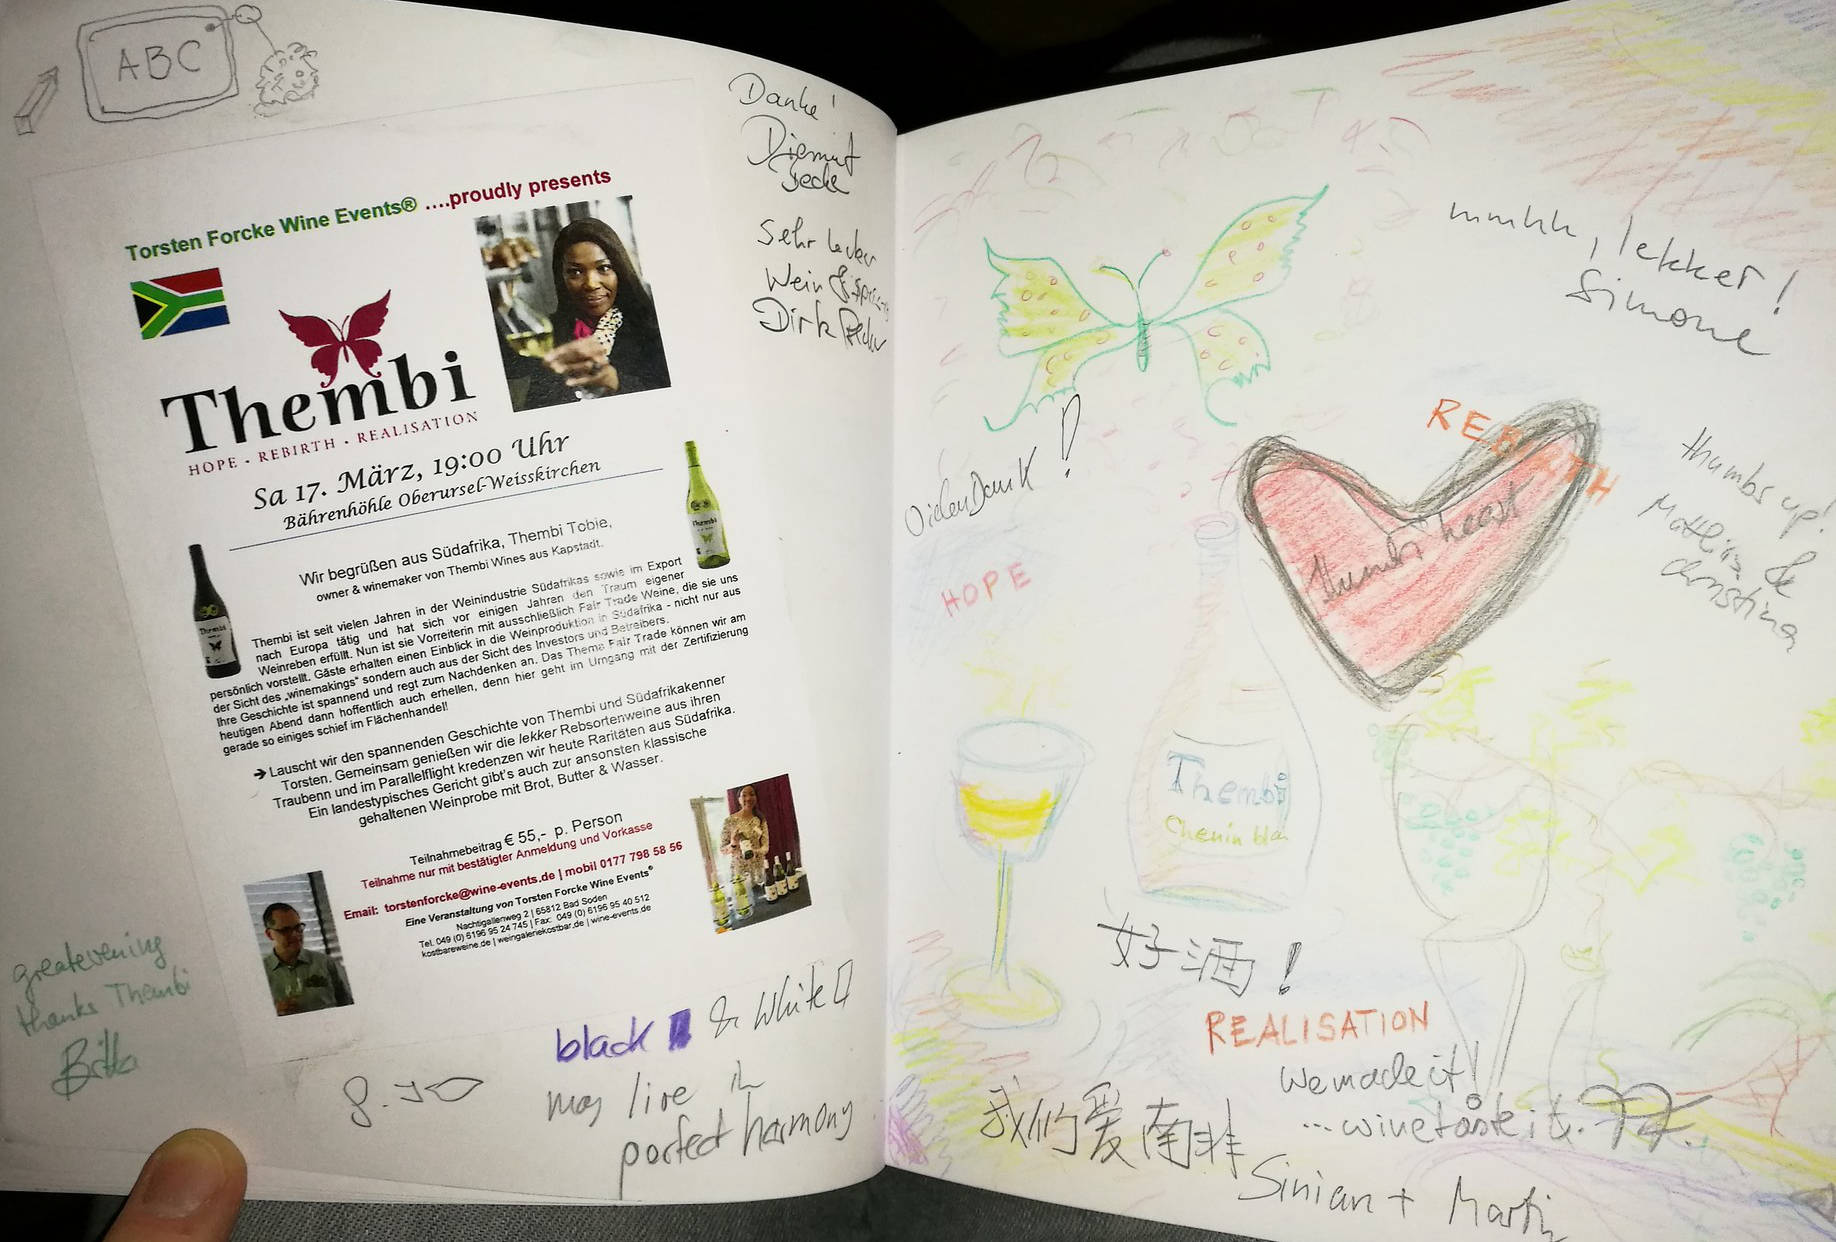 ABC
Torsten Forcke Wine Events® ....proudly presents
Thembi
HOPE • REBIRTH • REALISATION
Sa 17. März, 19:00 Uhr
Bährenhöhle Oberursel-Weisskirchen
Wir begrüßen aus Südafrika, Thembi Tobie,
owner & winemaker von Thembi Wines aus Kapstadt.
Thembi ist seit vielen Jahren in der Weinindustrie Südafrikas sowie im Export
nach Europa tätig und hat sich vor einigen Jahren den Traum eigener
Weinreben erfüllt. Nun ist sie Vorreiterin mit ausschließlich Fair Trade Weine, die sie uns
persönlich vorstellt. Gäste erhalten einen Einblick in die Weinproduktion in Südafrika - nicht nur aus
der Sicht des „winemakings" sondern auch aus der Sicht des Investors und Betreibers.
Ihre Geschichte ist spannend und regt zum Nachdenken an. Das Thema Fair Trade können wir am
heutigen Abend dann hoffentlich auch erhellen, denn hier geht im Umgang mit der Zertifizierung
gerade so einiges schief im Flächenhandel!
➔ Lauscht wir den spannenden Geschichte von Thembi und Südafrikakenner
Torsten. Gemeinsam genießen wir die lekker Rebsortenweine aus ihren
Traubenn und im Parallelflight kredenzen wir heute Raritäten aus Südafrika.
Ein landestypisches Gericht gibt's auch zur ansonsten klassische
gehaltenen Weinprobe mit Brot, Butter & Wasser.
Teilnahmebeitrag € 55,- p. Person
Teilnahme nur mit bestätigter Anmeldung und Vorkasse
Email: torstenforcke@wine-events.de | mobil 0177 798 58 56
Eine Veranstaltung von Torsten Forcke Wine Events®
Nachtigallenweg 2 | 65812 Bad Soden
Tel. 049 (0) 6196 95 24 745 | Fax: 049 (0) 6196 95 40 512
kostbareweine.de | weingaleriekostbar.de | wine-events.de
Danke!
Diemut
Sehr lecker
Wein &
Dirk
great evening
thanks Thembi
Britta
black & White
may live in
perfect harmony
mmhh, lekker!
Simone
REBIRTH
thumbs up!
&
Christina
Vielen Dank!
HOPE
Thembi heart
Thembi
Chenin blan
好酒!
REALISATION
We made it!
...wine taste it.
我们爱南非
Sinian + Martin